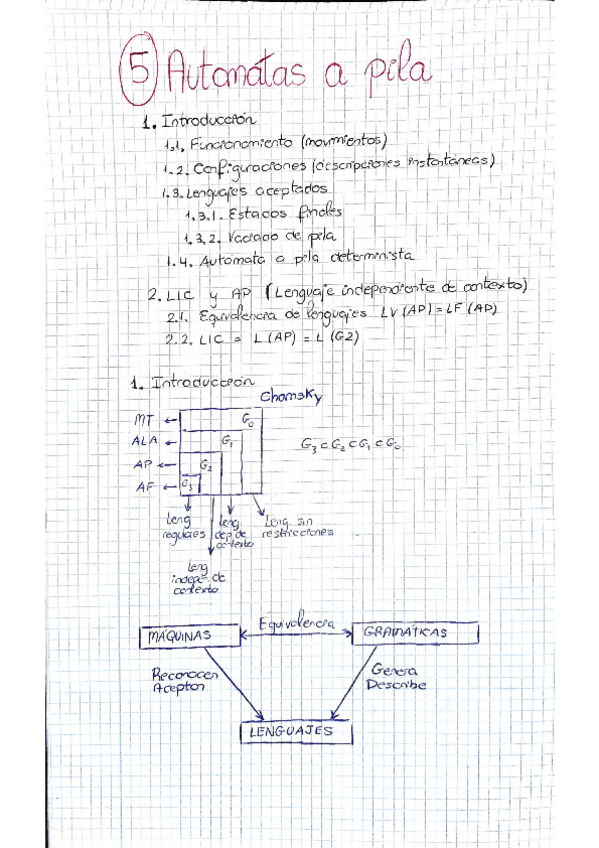 5 Automátas a pila
1. Introducción
1.1. Funcionamiento (movimientos)
1.2. Configuraciones (descripciones instantáneas)
1.3. Lenguajes aceptados
1.3.1. Estados finales
1.3.2. Vaciado de pila
1.4. Autómata a pila determinista
2. LIC y AP (Lenguaje independiente de contexto)
2.1. Equivalencia de lenguajes LV(AP) = LF(AP)
2.2. LIC = L(AP) = L(G2)
1. Introducción
Chomsky
MT ← G₀
ALA ← G₁
G₃ ⊂ G₂ ⊂ G₁ ⊂ G₀
AP ← G₂
AF ← G₃
Leng regulares
Leng dep de contexto
Leng. sin restricciones
Leng indepen. de contexto
Equivalencia
MÁQUINAS
GRAMÁTICAS
Reconocen
Aceptan
Genera
Describe
LENGUAJES